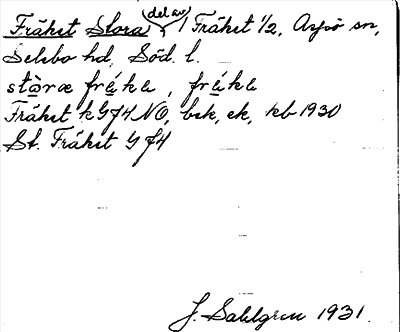 Fråhst Stora (del av) / Fråhst 1/2, Aspö sn,
Selebo hd, Söd. l.
stòræ frákı, frákı
Fråhst k GJ4 NO, bsk, ek, kb 1930
St. Fråhst GJ4
J. Sahlgren 1931.